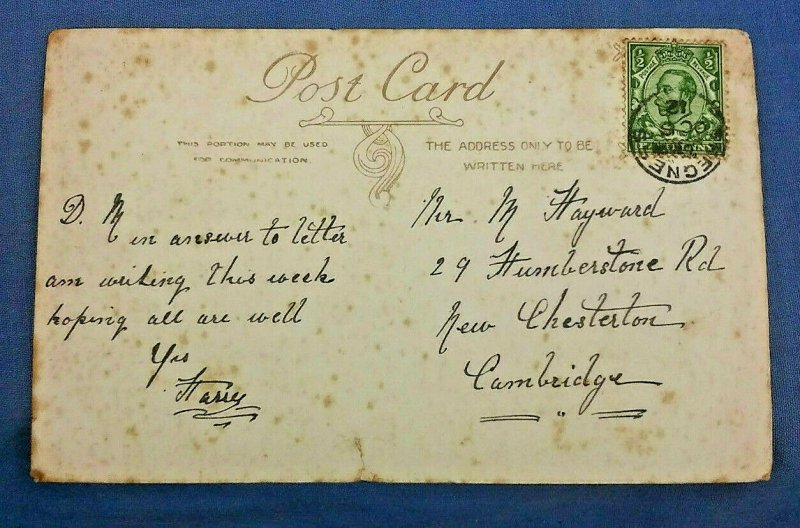 Post Card
THIS PORTION MAY BE USED
FOR COMMUNICATION.
THE ADDRESS ONLY TO BE
WRITTEN HERE
D. M
in answer to letter
am writing this week
hoping all are well
Yrs
Harry
Mr M Hayward
29 Humberstone Rd
New Chesterton
Cambridge
1/2 1/2